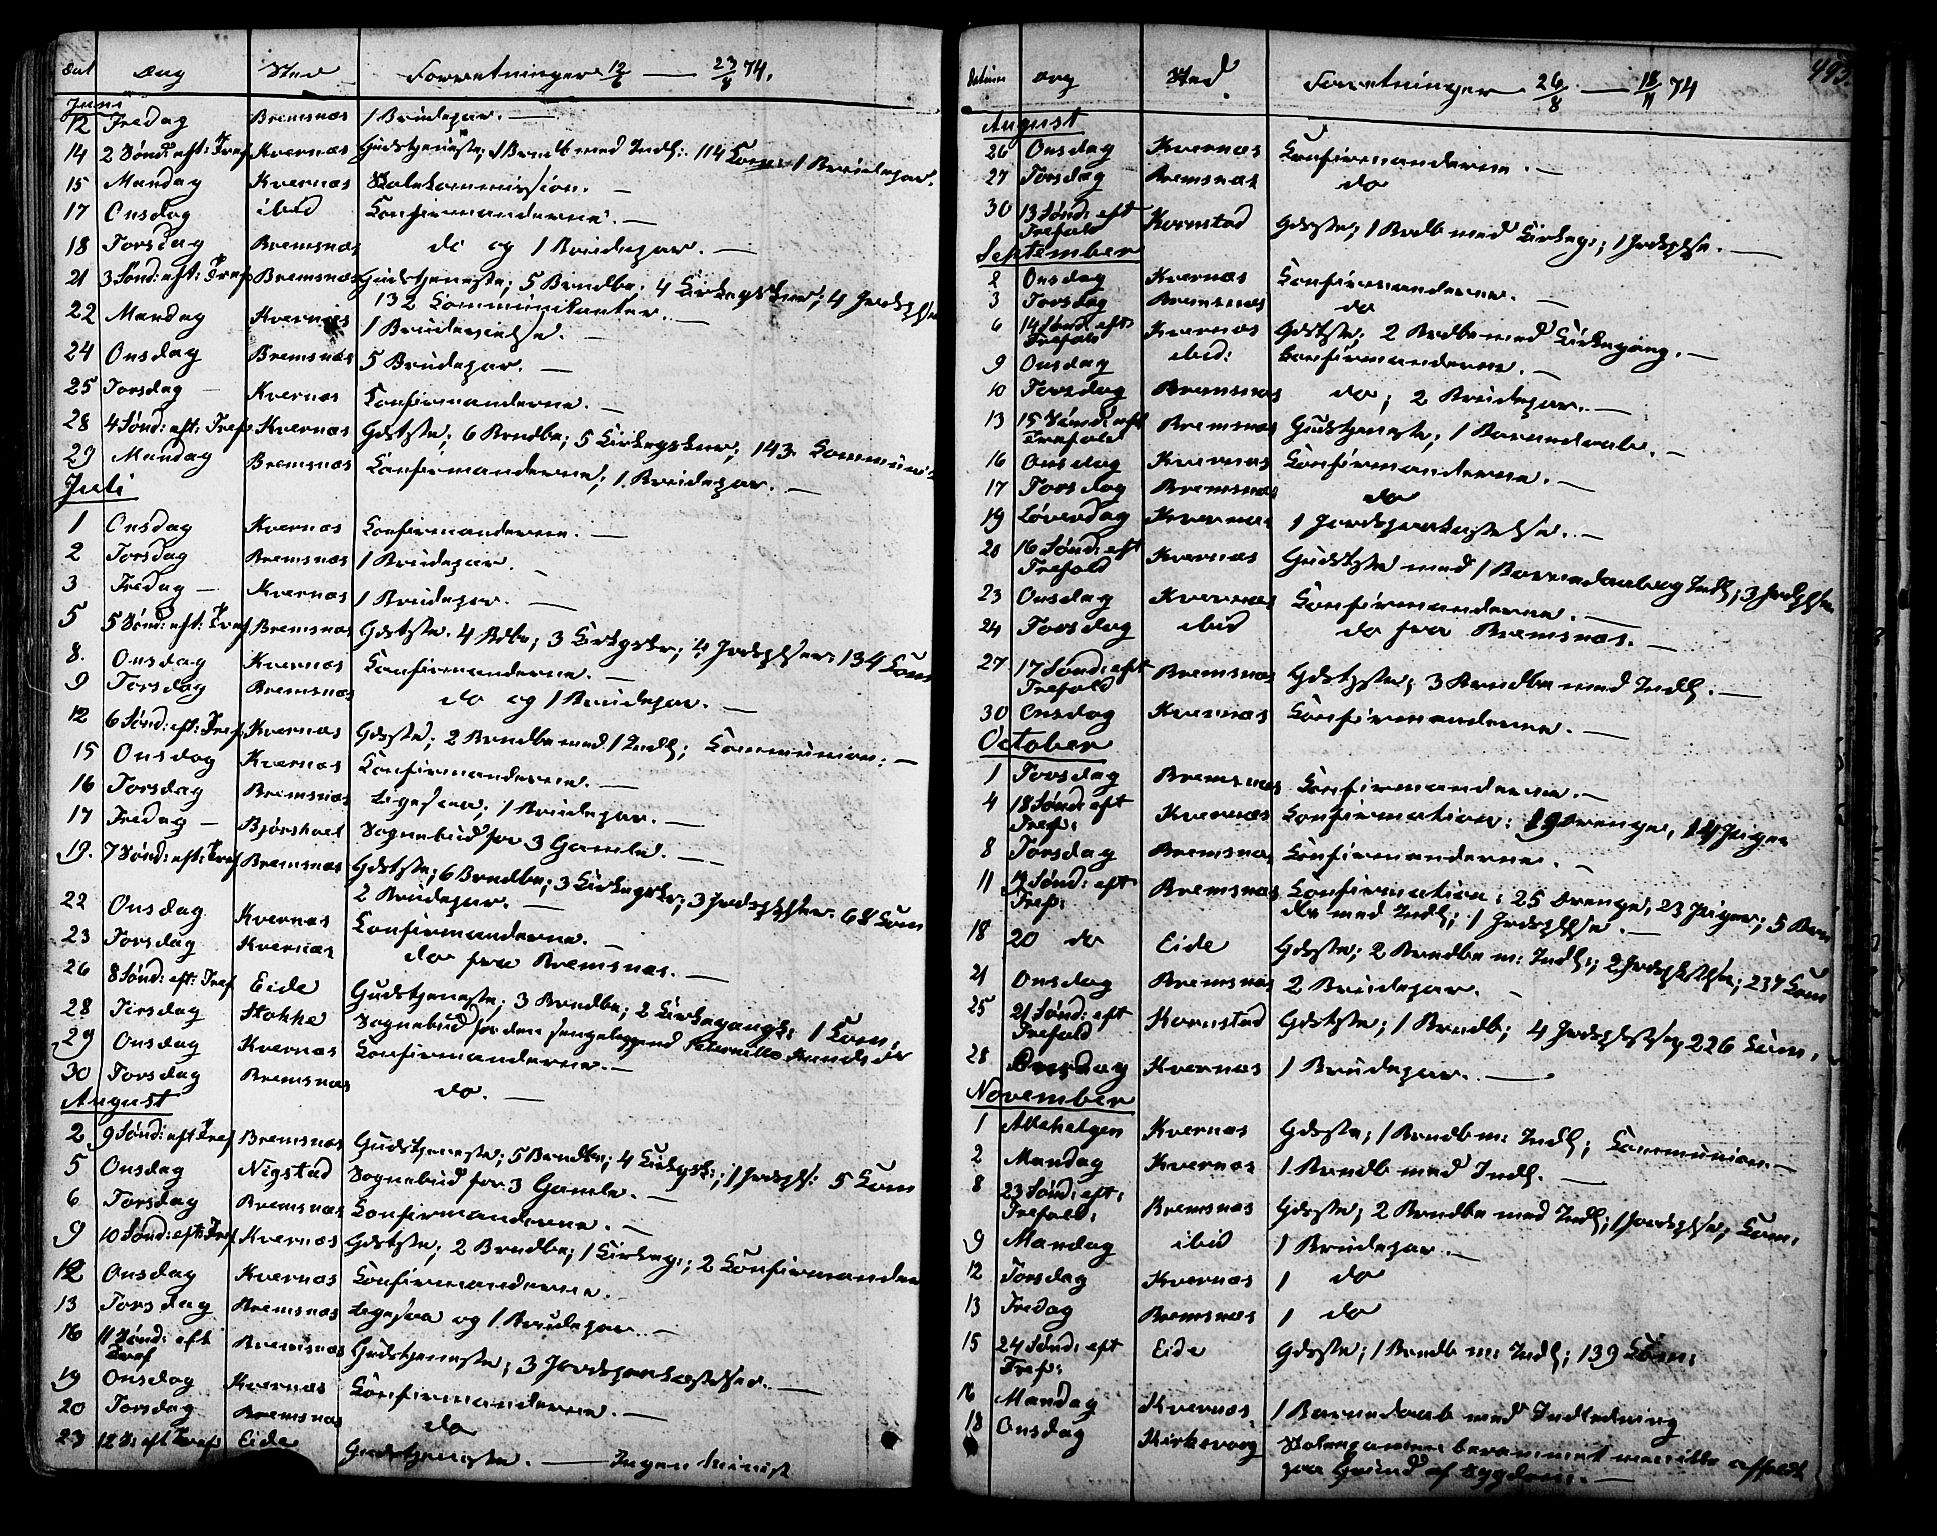 Dat Dag Sted Forretninger 12/6 — 23/8 74.
Juni
12 Fredag Bremsnæs 1 Brudepar. —
14 2 Sønd: eft: Tref Kvernæs Gudstjeneste; 1 Brndb med Indl: 114 Com: 1 Brudepar.
15 Mandag Kvernæs Skolekommission. —
17 Onsdag ibid Confirmanderne. —
18 Torsdag Bremsnæs do og 1 Brudepar. —
21 3 Sønd: eft: Tref Bremsnæs Gudstjeneste; 5 Brndbe, 4 Kirkegskner; 4 Jordsplse
132 Communikanter. —
22 Mandag Kvernæs 1 Brudevielse. —
24 Onsdag Bremsnæs 5 Brudepar. —
25 Torsdag — Kvernæs Confirmanderne. —
28 4 Sønd: eft: Tref Kvernæs Gdstste; 6 Brndbe; 5 Kirkegskner; 143 Commun:
29 Mandag Bremsnæs Confirmanderne; 1 Brudepar. —
Juli
1 Onsdag Kvernæs Confirmanderne. —
2 Torsdag Bremsnæs 1 Brudepar. —
3 Fredag — Kvernæs 1 Brudepar. —
5 5 Sønd: eft: Tref Bremsnæs Gdstste. 4 Bdbe; 3 Kirkgskr; 4 Jordsplser; 134 Com
8. Onsdag Kvernæs Confirmanderne. —
9 Torsdag Bremsnæs do og 1 Brudepar. —
12 6 Sønd: eft: Tref Kvernæs Gdsste; 2 Brndbe med 1 Indl; Communion: —
15 Onsdag Kvernæs Confirmanderne. —
16 Torsdag Bremsnæs Ligesaa; 1 Brudepar. —
17 Fredag — Bjørshoel Sognebud for 3 Gamle. —
19. 7 Sønd: eft: Tref Bremsnæs Gdstste; 6 Brndbe; 3 Kirkegskr; 3 Jordsplser. 68 Com
2 Brudepar. —
22 Onsdag Kvernæs Confirmanderne. —
23 Torsdag Kvernæs do fra Bremsnæs. —
26 8 Sønd: eft: Tref Eide Gudstjeneste; 3 Brndbe; 2 Kirkegangsk: 1 Com:
28 Tirsdag Stokke Sognebud for den sengeliggend Peternille
29 Onsdag Kvernæs Confirmanderne. —
30 Torsdag Bremsnæs do. —
August
2 9 Sønd: eft Tref Bremsnæs Gudstjeneste; 5 Brndbe; 4 Kirkgsk:; 1 Jordspls: 5 Com
5 Onsdag Nigstad Sognebud for 3 Gamle. —
6 Torsdag Bremsnæs Confirmanderne. —
9 10 Sønd: eft: Tref Kvernæs Gdstste; 2 Brndbe; 1 Kirkeg:; 2 Confirmander
12 Onsdag Kvernæs Confirmanderne. —
13 Torsdag Bremsnæs Ligesaa og 1 Brudepar. —
16 11 Sønd: eft Tref Bremsnæs Gudstjeneste; 3 Jordspaakastelser. —
19 Onsdag Kvernæs Confirmanderne. —
20 Torsdag Bremsnæs do
23 12 S: eft Tref Eide Gudstjeneste. — Ingen Minist
493.
Datum Dag Sted. Forretninger 26/8 — 18/11 74
August
26 Onsdag Kvernæs Confirmanderne. —
27 Torsdag Bremsnæs do
30 13 Sønd: eft Trefold Kornstad Gdsste; 1 Brdb med Kirkeg:; 1 Jordsplse. —
September
2 Onsdag Kvernæs Confirmanderne. —
3 Torsdag Bremsnæs do
6 14 Sønd: eft: Trefold Kvernæs Gdstste; 2 Brdbe med Kirkegang. —
9 Onsdag ibid: Confirmanderne. —
10 Torsdag Bremsnæs do; 2 Brudepar. —
13 15 Sønd: eft Trefold Bremsnæs Gudstjeneste; 1 Barnedaab. —
16 Onsdag Kvernæs Confirmanderne. —
17 Torsdag Bremsnæs do
19 Løverdag Kvernæs 1 Jordspaakastelse. —
20 16 Sønd: eft Trefold Kvernæs Gudstste med 1 Barnedaab og Indl; 3 Jordsplser
23 Onsdag Kvernæs Confirmanderne. —
24 Torsdag ibid do fra Bremsnæs. —
27 17 Sønd: eft Trefold Bremsnæs Gdstste; 3 Brndbe med Indl. —
30 Onsdag Kvernæs Confirmanderne. —
October
1 Torsdag Bremsnæs Confirmanderne. —
4 18 Sønd: eft Tref: Kvernæs Confirmation: 19 Drenge, 14 Piger
8 Torsdag Bremsnæs Confirmanderne. —
11 19 Sønd: eft Tref: Bremsnæs Confirmation: 25 Drenge, 23 Piger; 5 Brn
dbe med Indl; 1 Jordsplse. —
18 20 do Eide Gdsste; 2 Brndbe m: Indl:; 2 Jordsplse; 237 Com
21 Onsdag Bremsnæs 2 Brudepar. —
25 21 Sønd: eft Trefold Kornstad Gdstste; 1 Brndb; 4 Jordsplser; 226 Com:
28 Onsdag Kvernæs 1 Brudepar. —
November
1 Allehelgen Kvernæs Gdsste; 1 Brndb m: Indl; Communion. —
2 Mandag Kvernæs 1 Brndb med Indl. —
8 23 Sønd: eft: Trefold: Bremsnæs Gdsste; 2 Brndbe med Indl; 1 Jordsplse; Com:
9 Mandag ibid 1 Brudepar. —
12 Torsdag Kvernæs 1 do
13 Fredag Bremsnæs 1 do
15 24 Sønd: eft Tref: Eide Gdsste; 1 Brndb m: Indl; 139 Com:
16 Mandag Kvernæs 1 Barnedaab med Indledning
18 Onsdag Kirkevaag Skoleexamen berammet men ikke afholdt
paa Grund af Sygdom. —